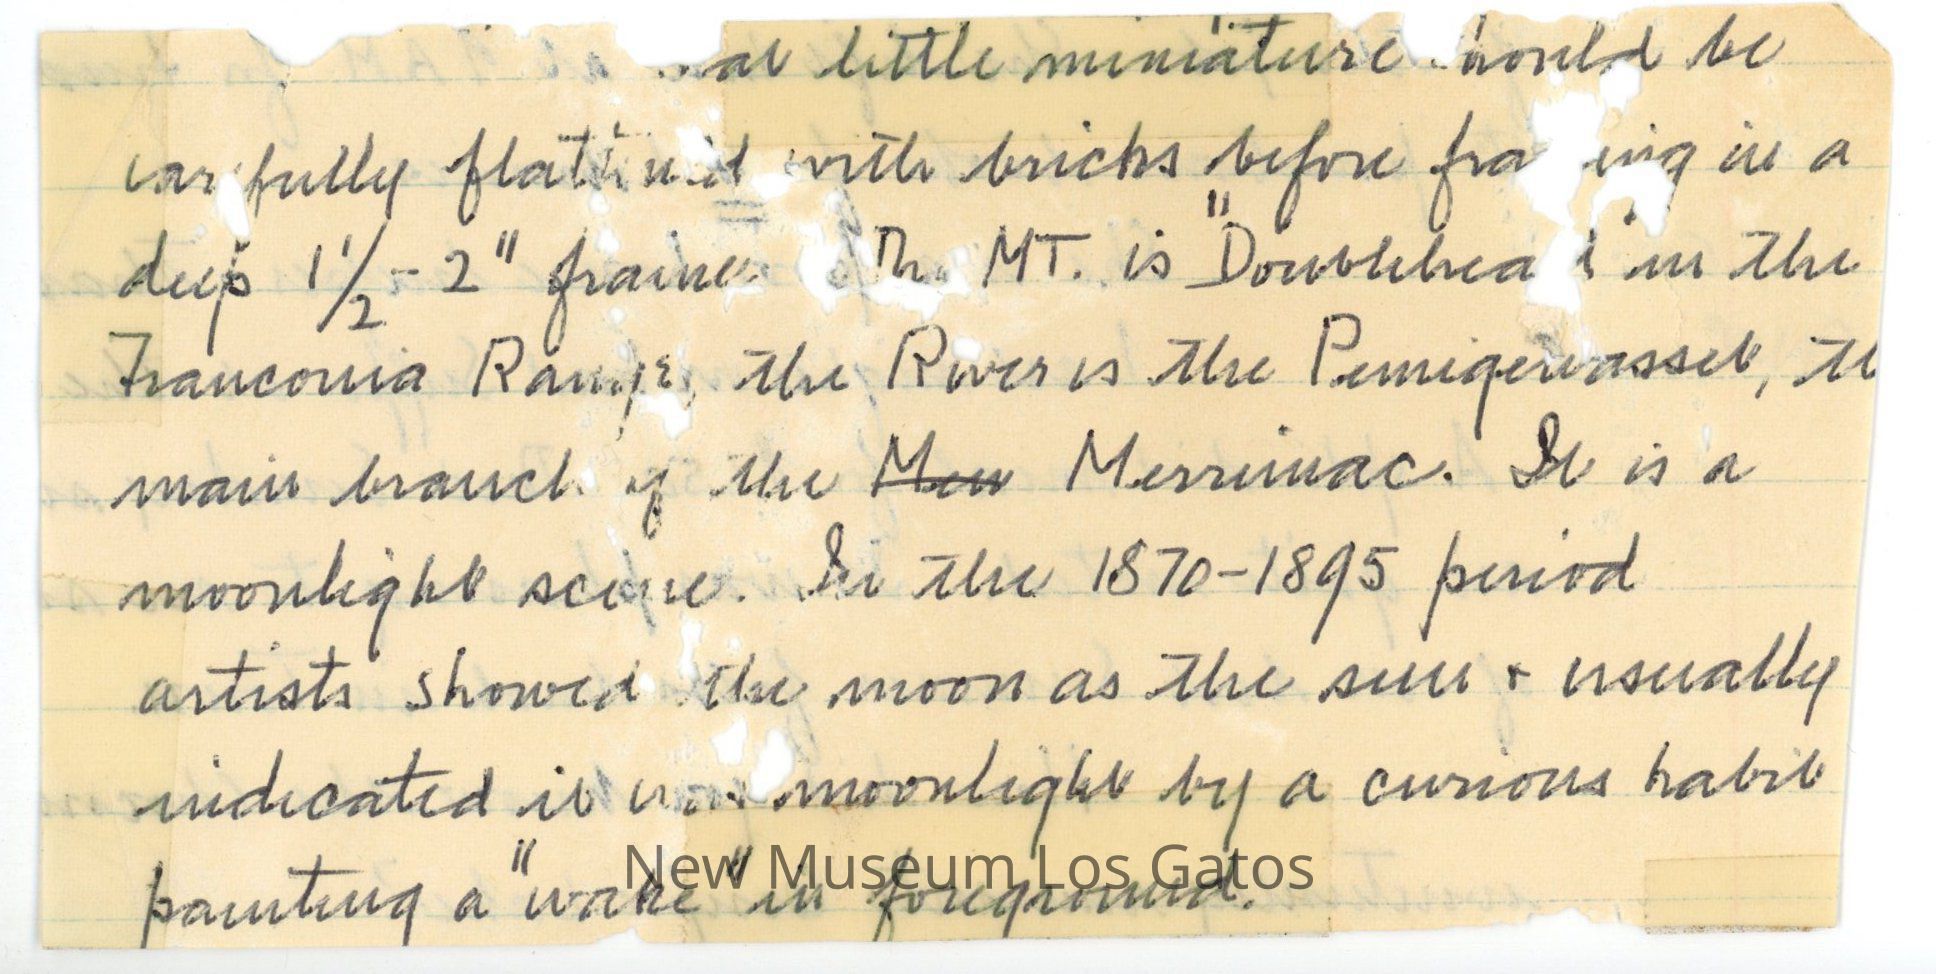 little miniature should be
carefully flattened with bricks before framing in a
deep 1 1/2 - 2" frame. The MT. is "Doublehead" in the
Franconia Range, the River is the Pemigewasset, th
main branch of the Mew Merrimac. It is a
moonlight scene. In the 1870-1895 period
artists showed the moon as the sun + usually
indicated it was moonlight by a curious habit
painting a "wake" in foreground.
New Museum Los Gatos